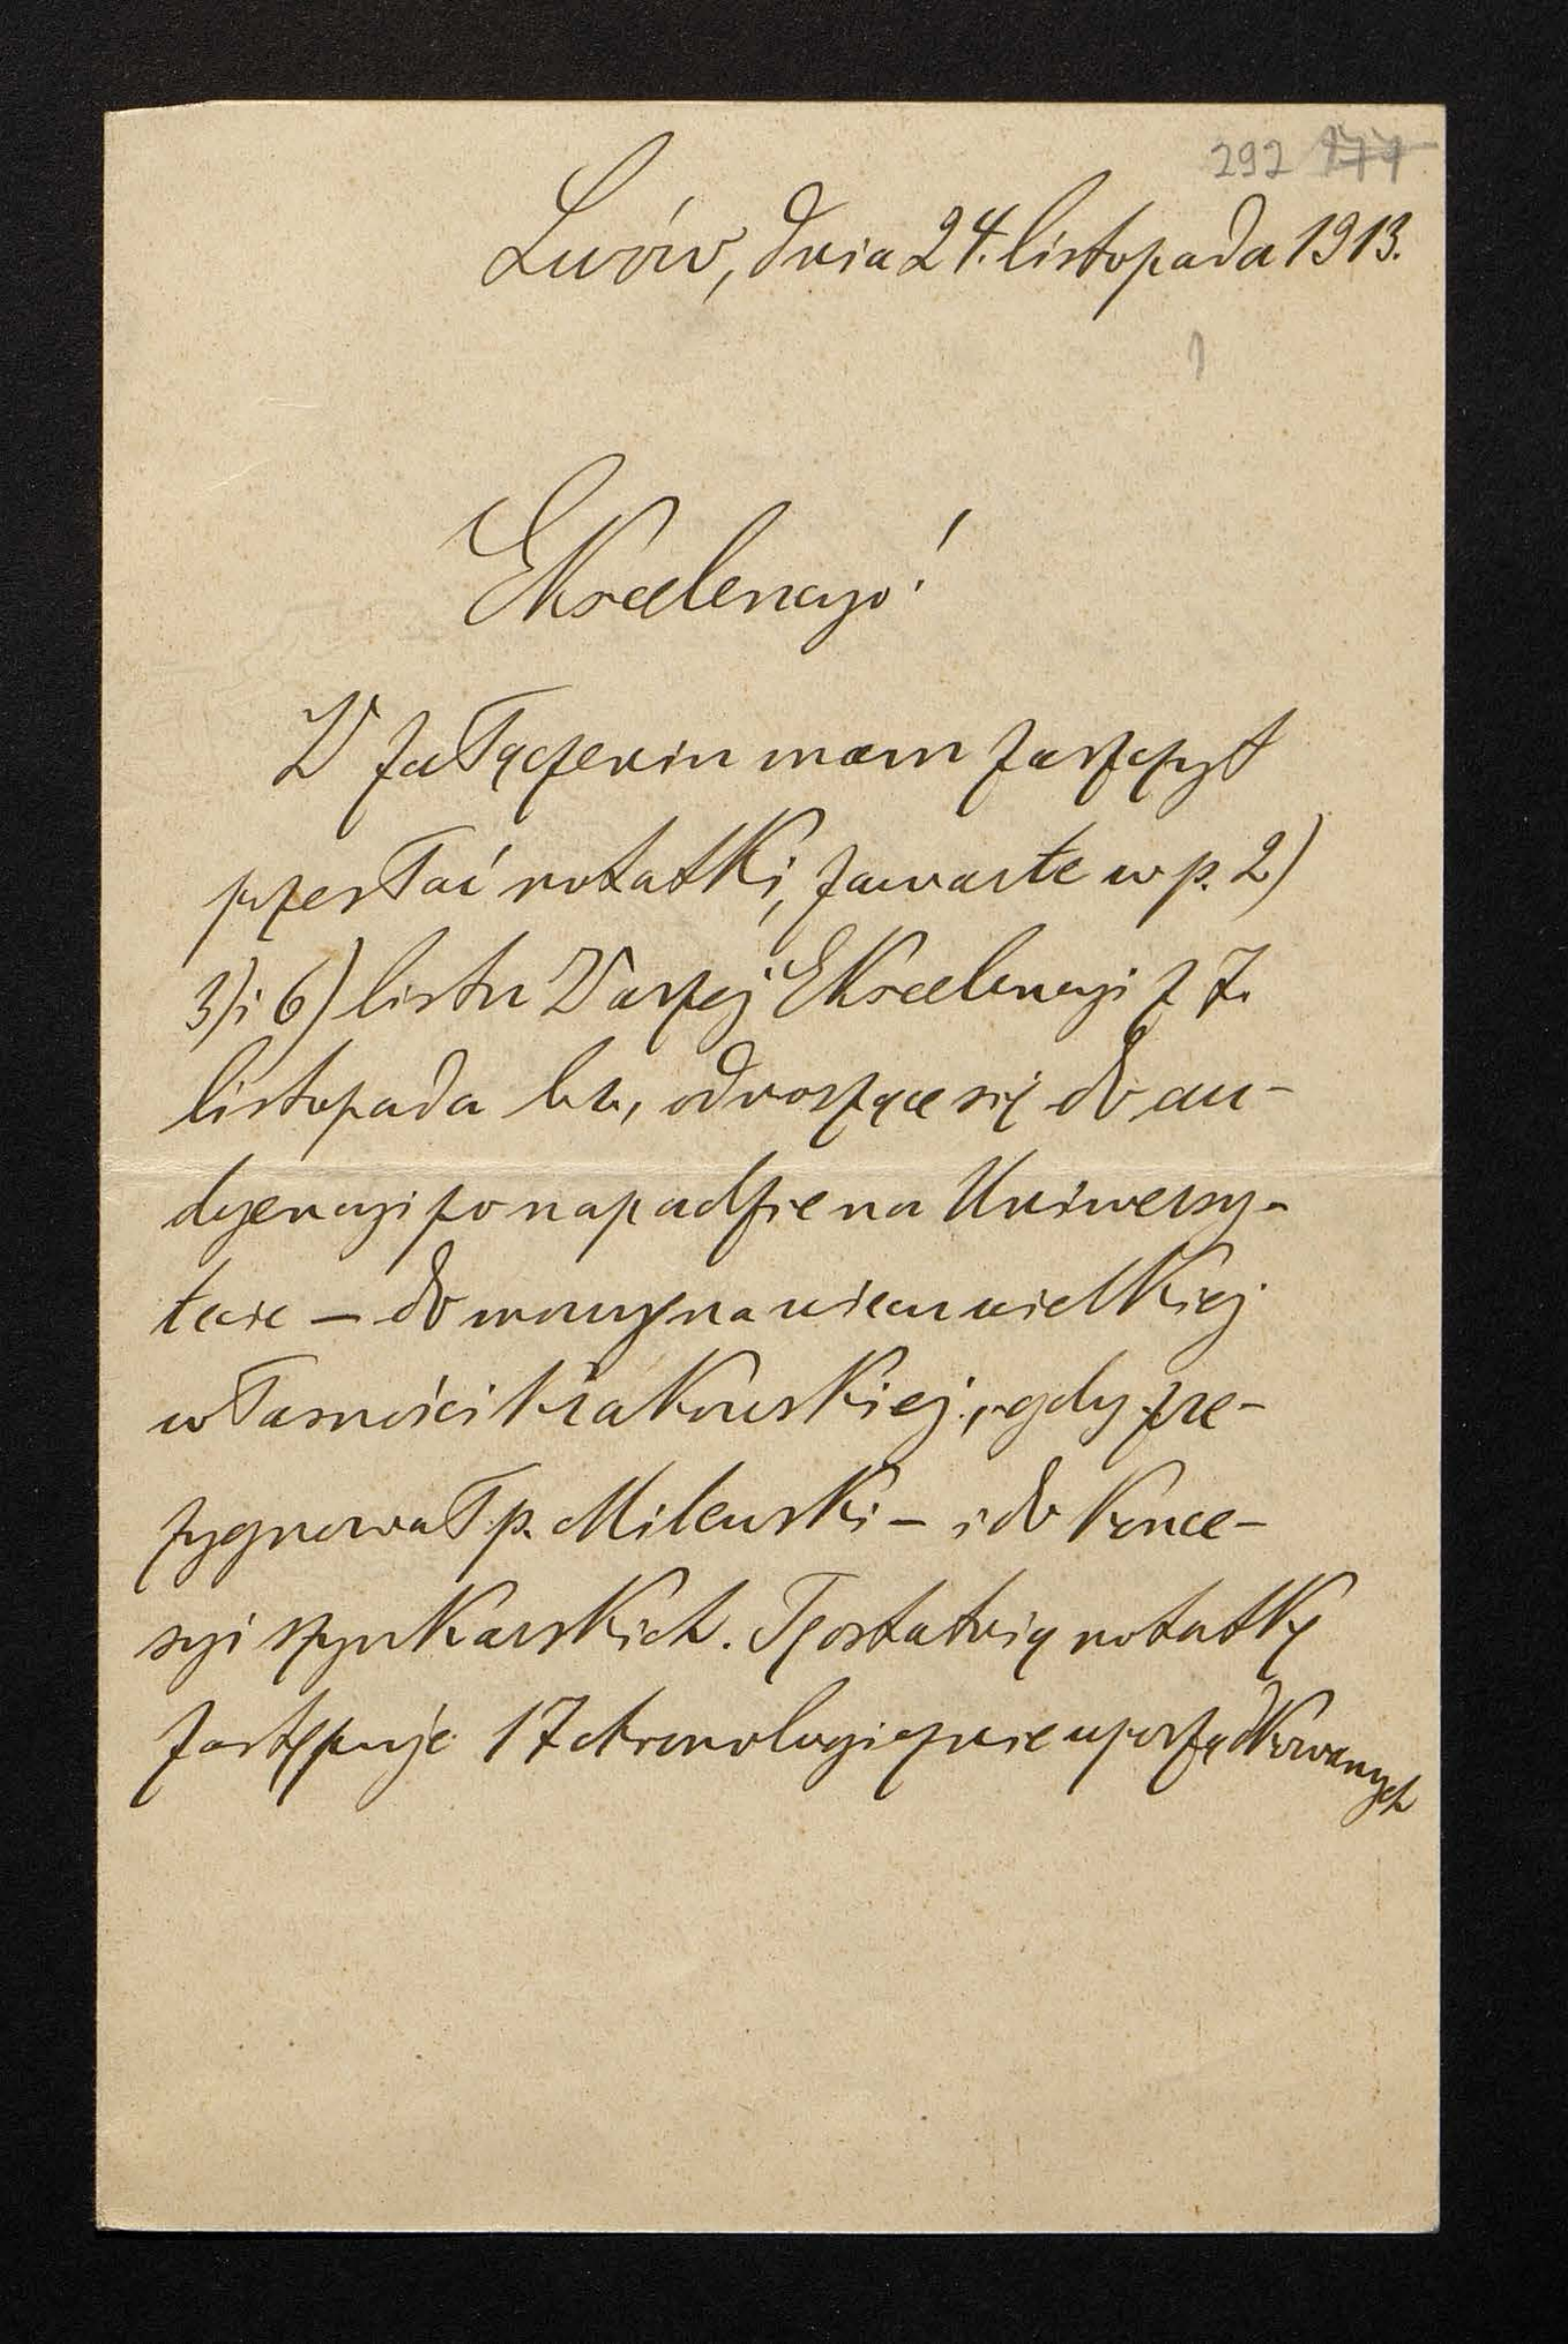 292 177
Lwów, dnia 24. listopada 1913.
1
Ekscelencyo!
W załączeniu mam zaszczyt
przesłać notatki, zawarte w p. 2)
3) i 6) listu Waszej Ekscelencyi z 7.
listopada br., odnoszące się do au-
dyencyi po napadzie na Uniwersy-
tecie – do mowy na wiecu wielkiej
własności krakowskiej, gdy zre-
zygnował p. Milewski – i do konce-
syi szynkarskich. Tę ostatnią notatkę
zastępuje 17 chronologicznie uporządkowanych